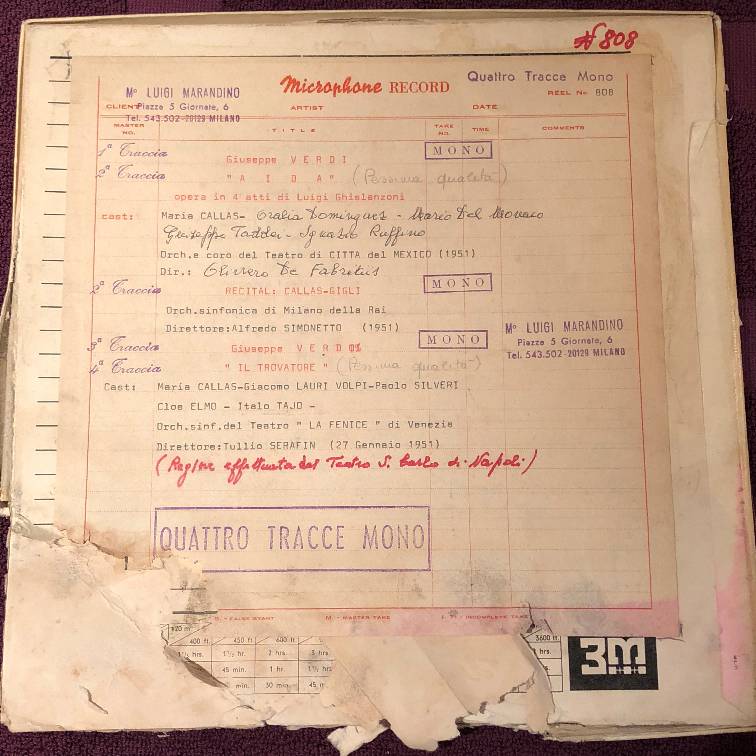 # 808
Mo LUIGI MARANDINO
Piazza 5 Giornate, 6
Tel. 543.502-20129 MILANO
Microphone RECORD
Quattro Tracce Mono
REEL No 808
CLIENT ARTIST DATE
MASTER NO. TITLE TAKE NO. TIME COMMENTS
1a Traccia Giuseppe VERDI MONO
2a Traccia "AIDA" (Pessima qualità)
opera in 4 atti di Luigi Ghislanzoni
cast: Maria CALLAS- Oralia Dominguez - Mario Del Monaco
Giuseppe Taddei - Ignazio Ruffino
Orch.e coro del Teatro di CITTA del MEXICO (1951)
Dir.: Oliviero De Fabritiis
2a Traccia RECITAL: CALLAS-GIGLI MONO
Orch.sinfonica di Milano della Rai
Direttore:Alfredo SIMONETTO (1951)
Mo LUIGI MARANDINO
Piazza 5 Giornate, 6
Tel. 543.502-20129 MILANO
3a Traccia Giuseppe VERDI MONO
4a Traccia "IL TROVATORE" (Pessima qualità)
Cast: Maria CALLAS-Giacomo LAURI VOLPI-Paolo SILVERI
Cloe ELMO - Italo TAJO -
Orch.sinf.del Teatro "LA FENICE" di Venezia
Direttore:Tullio SERAFIN (27 Gennaio 1951)
(Regine effettuata dal Teatro S. Carlo di Napoli)
QUATTRO TRACCE MONO
S. - FALSE START M. - MASTER TAKE I. T. - INCOMPLETE TAKE
400 ft. 450 ft. 600 ft. 3600 ft.
1½ hrs. 1½ hr. 2 hrs. 3 hrs. hrs.
45 min. 1 hr. 1½ hr.
min. 30 min. 45 min.
3M